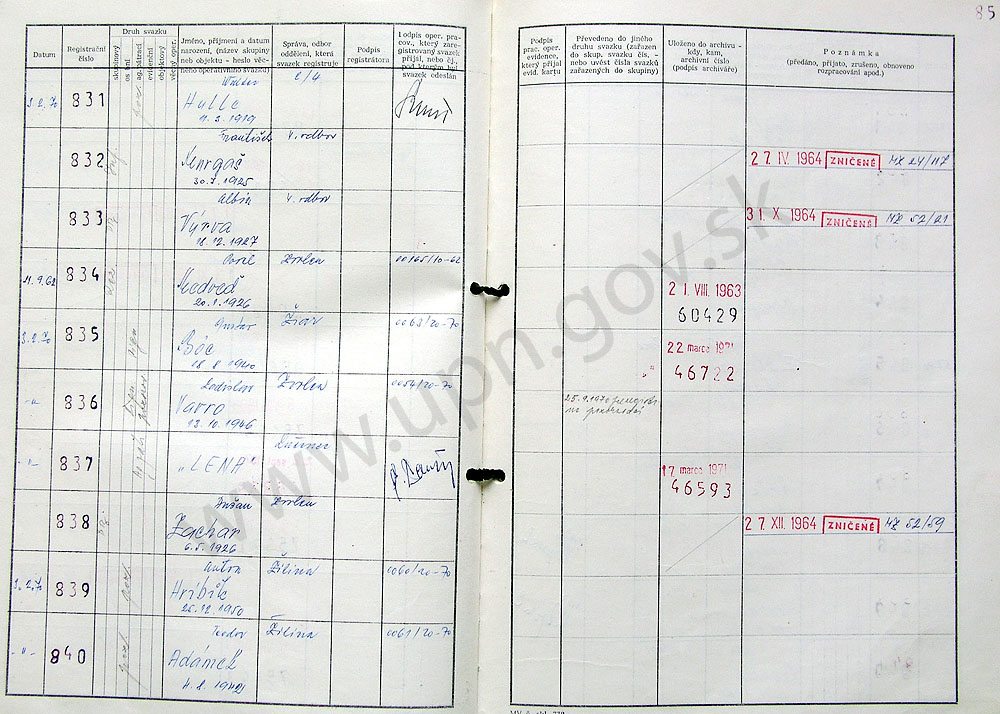 85
Datum
Registrační číslo
Druh svazku
skupinový
osobní
agenturní
evidenční
objektový
Jméno, příjmení a datum narození, (název skupiny neb objektu - heslo věcného operativního svazku)
Správa, odbor oddělení, která svazek registruje
Podpis registrátora
Podpis oper. pracov., který zaregistrovaný svazek přijal, nebo čj., pod kterým byl svazek odeslán
Podpis prac. oper. evidence, který přijal evid. kartu
Převedeno do jiného druhu svazku (zařazen do skup. svazku čís. - nebo uvést čísla svazků zařazených do skupiny)
Uloženo do archivu - kdy, kam, archivní číslo (podpis archiváře)
Poznámka
(předáno, přijato, zrušeno, obnoveno rozpracování apod.)
831 Walter Hulle 2/4
František V. odbor
832
30.7.1925
27 IV. 1964 ZNIČENÉ MZ 24/117
Albín V. odbor
833 Výrva
18.12.1927
31 X 1964 ZNIČENÉ MZ 52/21
Pavel Zvolen 00165/10-62
11.9.62 834 Medveď
20.1.1926
21. VIII. 1963
60429
Gustav Žiar 0063/20-70
3.2.70 835 Bóc
18.8.1940
22 marca 1971
46722
Ladislav Zvolen 0054/20-70
-"- 836 Varro
13.10.1946
25.9.1970
-"- 837 „LENA"
17 marca 1971
46593
Dušan Zvolen
838 Zachar
6.5.1926
27 XII. 1964 ZNIČENÉ MZ 52/59
Anton Žilina 0060/20-70
3.2.70 839 Hríbik
26.12.1950
Teodor Žilina 0061/20-70
-"- 840 Adámek
4.8.1942
www.upn.gov.sk